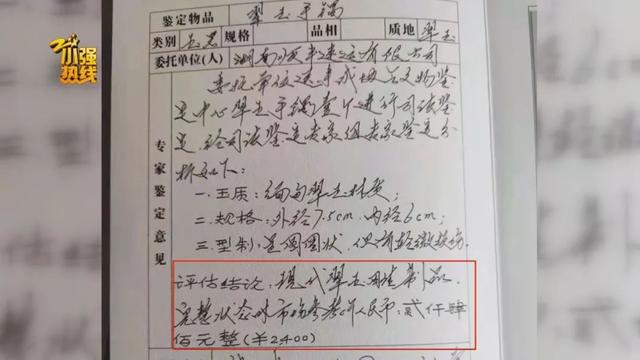 小强热线
鉴定物品 翠玉手镯
类别 玉器 规格 品相 质地 翠玉
委托单位(人) 湖南 有限公司
委托单位送来 文物鉴
定中心翠玉手镯壹个进行司法鉴
定,经司法鉴定专家组专家鉴定分
析如下:
专家鉴定意见
一.玉质:缅甸翠玉材质;
二.规格:外径7.5cm.内径6cm;
三.型制:呈圆圈状,但有轻微损伤.
评估结论:现代翠玉圆镯制品,
完整状态时市场参考价人民币:贰仟肆
佰元整(¥2400)